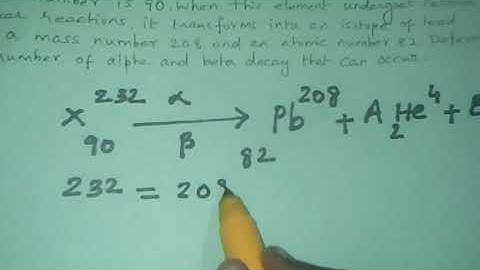 number is 90. When this element undergoes
reactions, it transforms into an isotope of lead
a mass number 208 and an atomic number 82
number of alpha and beta decay that can occur.
X 232 90 α β → Pb 208 82 + A 2 He 4 +
232 = 20